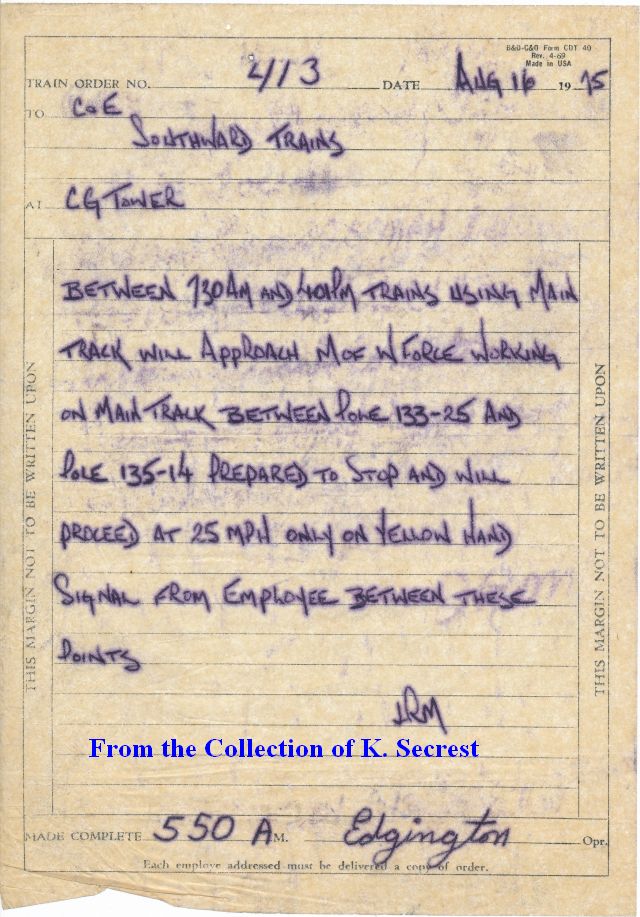 B&O-C&O Form CDT 40
Rev. 4-69
Made in USA
TRAIN ORDER NO. 413 DATE AUG 16 1975
TO C&E
SOUTHWARD TRAINS
AT CG TOWER
BETWEEN 730AM AND 401PM TRAINS USING MAIN
TRACK WILL APPROACH M OF W FORCE WORKING
ON MAIN TRACK BETWEEN POLE 133-25 AND
POLE 135-14 PREPARED TO STOP AND WILL
PROCEED AT 25 MPH ONLY ON YELLOW HAND
SIGNAL FROM EMPLOYEE BETWEEN THESE
POINTS
JRM
From the Collection of K. Secrest
MADE COMPLETE 550 A M. Edgington Opr.
Each employe addressed must be delivered a copy of order.
THIS MARGIN NOT TO BE WRITTEN UPON
THIS MARGIN NOT TO BE WRITTEN UPON